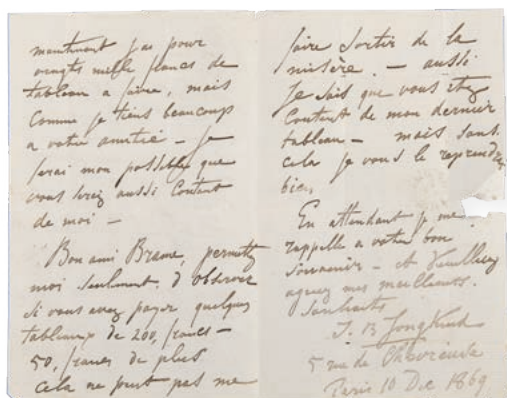 maintenant j'ai pour
vingts mille francs de
tableau a faire, mais
comme je tiens beaucoup
a votre amitié - je
ferai mon possible que
vous serez aussi content
de moi -
Bon ami Brame, permettez
moi seulement d'observer
si vous avez payer quelques
tableaux de 200, francs -
50, francs de plus
cela ne peut pas me
faire sortir de la
misère. - aussi
je sais que vous etez
content de mon dernier
tableau - mais sans
cela je vous le
bien,
En attendant je me
rappelle a votre bon
souvenir - et veuillez
mes meilleurs
souhaits
J. B Jongkind
5 rue de Chevreuse
Paris 10 Dec 1869